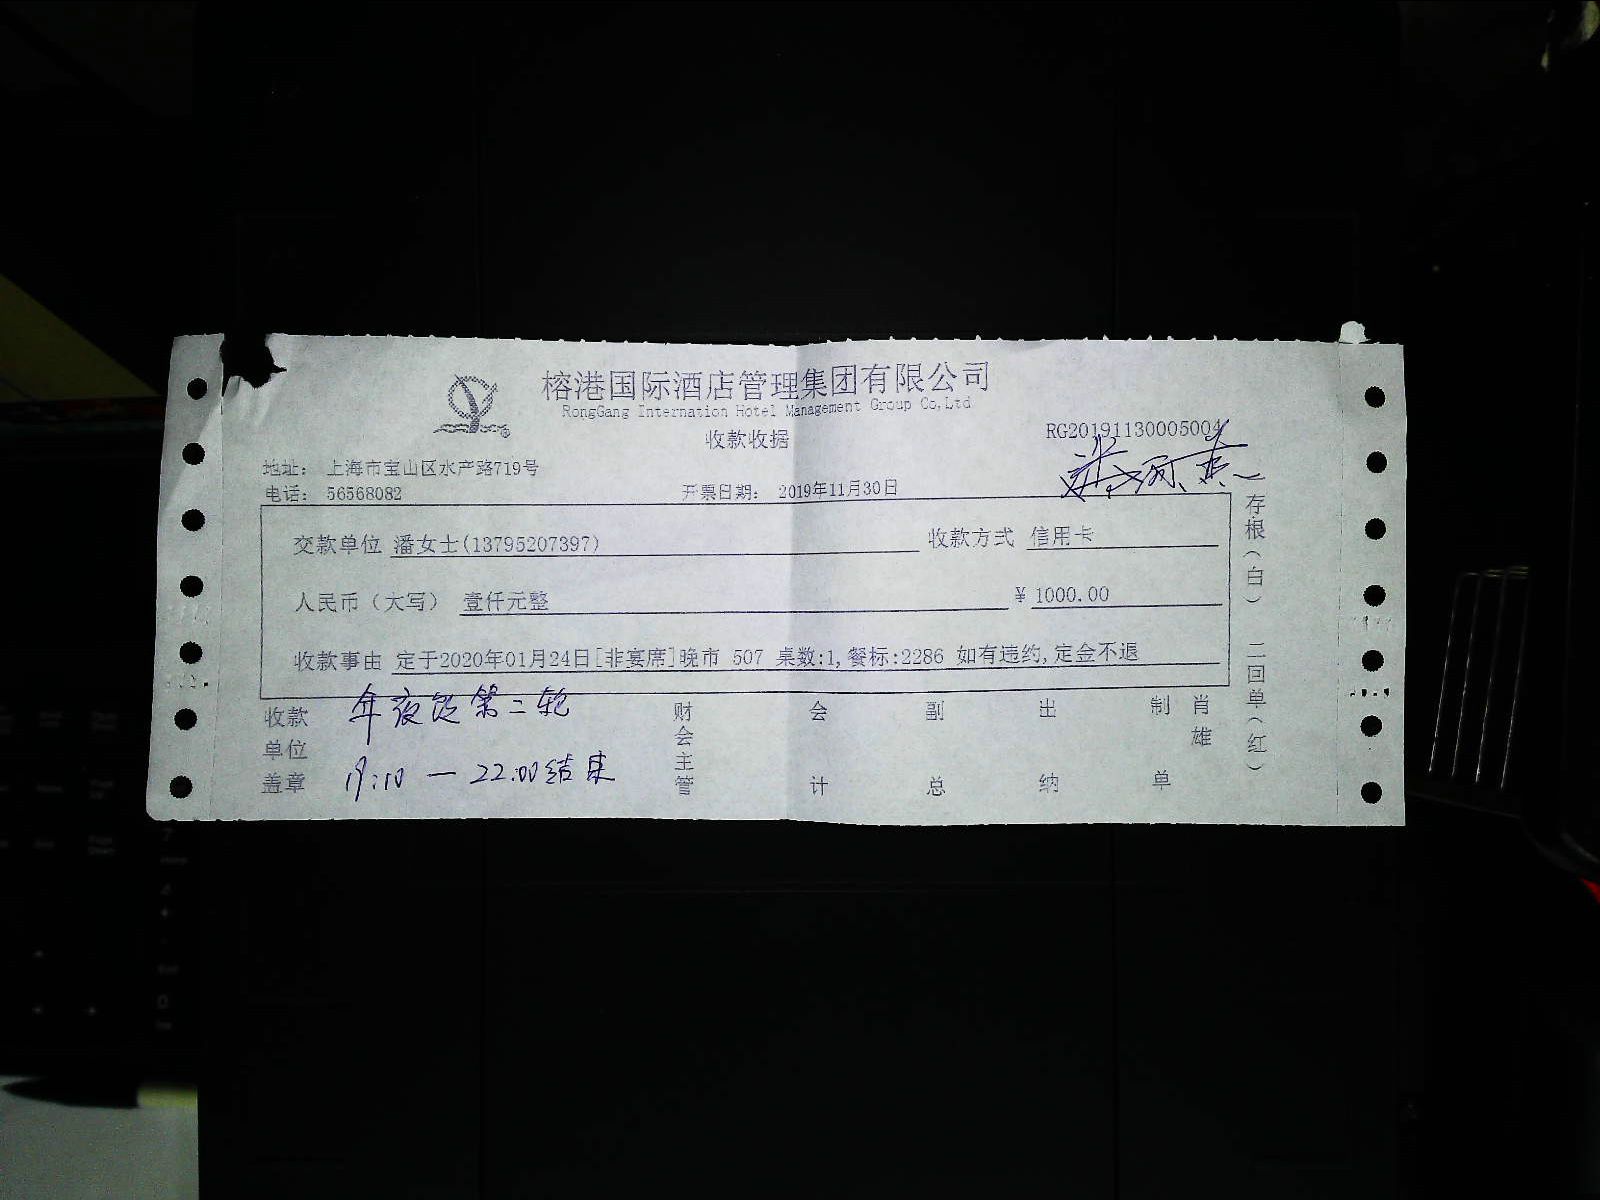 榕港国际酒店管理集团有限公司
RongGang Internation Hotel Management Group Co,Ltd
收款收据
RG20191130005004
地址： 上海市宝山区水产路719号
电话： 56568082
开票日期： 2019年11月30日
交款单位 潘女士(13795207397) 收款方式 信用卡
人民币（大写） 壹仟元整 ¥ 1000.00
收款事由 定于2020年01月24日[非宴席]晚市 507 桌数:1,餐标:2286 如有违约,定金不退
年夜饭第二轮
19:10 — 22:00结束
收款单位盖章
财会主管
会计
副总
出纳
制单
肖雄
一存根（白） 二回单（红）